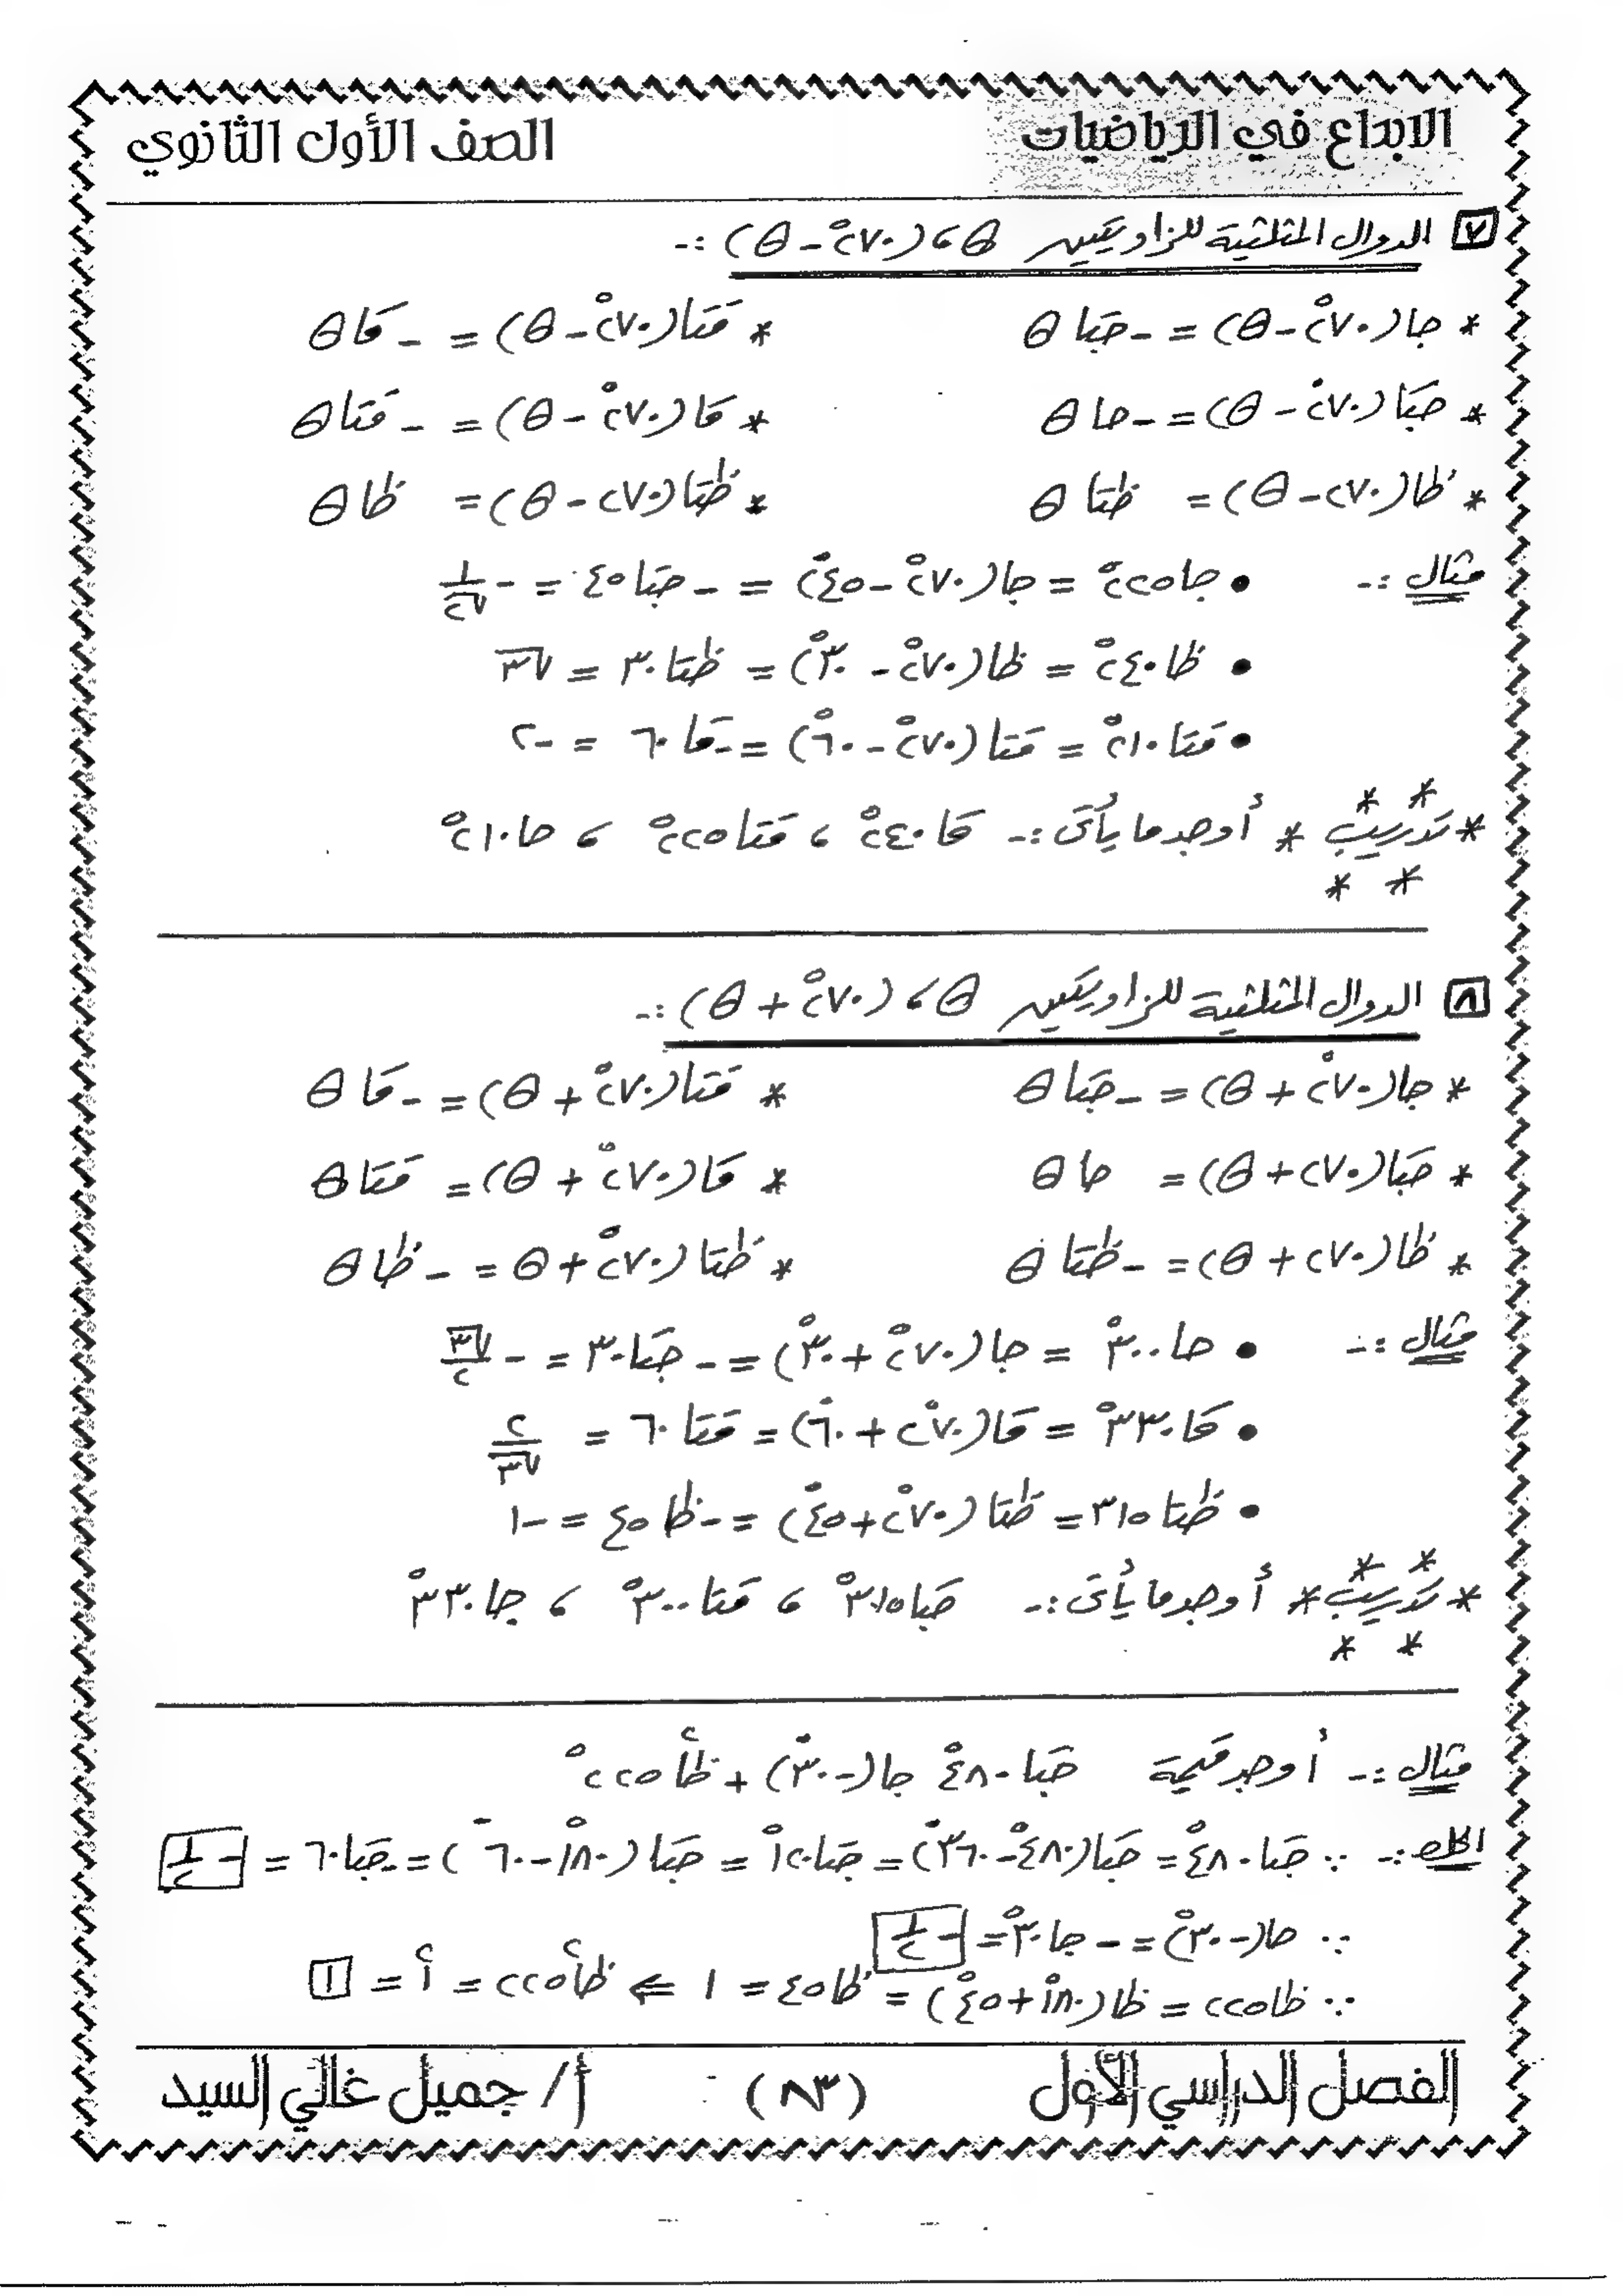 الابداع في الرياضيات
الصف الأول الثانوي
٧ الدوال المثلثية للزاويتين θ ، (٢٧٠° - θ) :-
* جا(٢٧٠° - θ) = - جتا θ * قتا(٢٧٠° - θ) = - قا θ
* جتا(٢٧٠° - θ) = - جا θ * قا(٢٧٠° - θ) = - قتا θ
* ظا(٢٧٠ - θ) = ظتا θ * ظتا(٢٧٠ - θ) = ظا θ
مثال :- • جا٢٢٥° = جا(٢٧٠° - ٤٥°) = - جتا ٤٥ = - ١/√٢
• ظا ٢٤٠° = ظا(٢٧٠° - ٣٠°) = ظتا ٣٠ = √٣
• قتا ٢١٠° = قتا (٢٧٠° - ٦٠°) = - قا ٦٠ = - ٢
* تدريب * أوجد ما يأتى :- قا ٢٤٠° ، قتا ٢٢٥° ، جا ٢١٠°
٨ الدوال المثلثية للزاويتين θ ، (٢٧٠° + θ) :-
* جا(٢٧٠° + θ) = - جتا θ * قتا(٢٧٠° + θ) = - قا θ
* جتا(٢٧٠ + θ) = جا θ * قا(٢٧٠° + θ) = قتا θ
* ظا(٢٧٠ + θ) = - ظتا θ * ظتا (٢٧٠° + θ = - ظا θ
مثال :- • جا ٣٠٠° = جا (٢٧٠° + ٣٠°) = - جتا ٣٠ = - √٣/٢
• قا ٣٣٠° = قا(٢٧٠° + ٦٠°) = قتا ٦٠ = ٢/√٣
• ظتا ٣١٥ = ظتا (٢٧٠° + ٤٥°) = - ظا ٤٥ = - ١
* تدريب * أوجد ما يأتى :- جتا ٣١٥° ، قتا ٣٠٠° ، جا ٣٣٠°
مثال :- أوجد قيمة جتا ٤٨٠° جا(-٣٠°) + ظا٢ ٢٢٥°
الحل :- ∵ جتا ٤٨٠° = جتا(٤٨٠° - ٣٦٠°) = جتا ١٢٠° = جتا (١٨٠° - ٦٠°) = - جتا ٦٠ = - ١/٢
∵ جا(-٣٠°) = - جا ٣٠° = - ١/٢
∵ ظا ٢٢٥ = ظا(١٨٠° + ٤٥°) = ظا ٤٥ = ١ ⇐ ظا٢ ٢٢٥ = ١٢ = ١
الفصل الدراسي الأول
(٨٣)
أ/ جميل غالي السيد